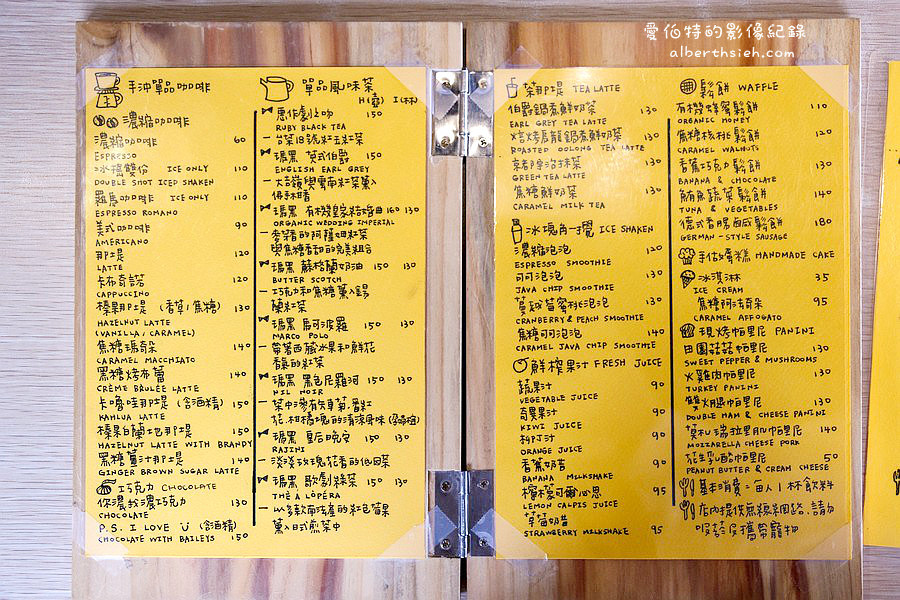 愛伯特的影像紀錄
alberthsieh.com
手沖單品咖啡
濃縮咖啡
濃縮咖啡 60
ESPRESSO
冰搖雙份 ICE ONLY 110
DOUBLE SHOT ICED SHAKEN
羅馬咖啡 ICE ONLY 110
ESPRESSO ROMANO
美式咖啡 90
AMERICANO
那堤 120
LATTE
卡布奇諾 120
CAPPUCCINO
榛果那堤 (香草/焦糖) 130
HAZELNUT LATTE
(VANILLA/CARAMEL)
焦糖瑪奇朵 140
CARAMEL MACCHIATO
黑糖烤布蕾 140
CRÈME BRÛLÉE LATTE
卡嚕哇那堤 (含酒精) 150
KAHLUA LATTE
榛果白蘭地那堤 150
HAZELNUT LATTE WITH BRANDY
黑糖薑汁那堤 140
GINGER BROWN SUGAR LATTE
巧克力 CHOCOLATE
你濃我濃巧克力 130
CHOCOLATE
P.S. I LOVE U (含酒精)
CHOCOLATE WITH BAILEYS 150
單品風味茶
H(熱) I(冰)
惡作劇之吻 150
RUBY BLACK TEA
台茶18號紅玉紅茶
瑪黑 英式伯爵 150
ENGLISH EARL GREY
大吉嶺與雲南紅茶薰入
佛手柑香
瑪黑 有機皇家婚禮曲 160 130
ORGANIC WEDDING IMPERIAL
麥芽香的阿薩姆紅茶
與焦糖香甜的完美組合
瑪黑 蘇格蘭奶油 150 130
BUTTER SCOTCH
巧克力和焦糖薰入錫
蘭紅茶
瑪黑 馬可波羅 150 130
MARCO POLO
帶著西藏水果和鮮花
香氣的紅茶
瑪黑 黑色尼羅河 150 130
NIL NOIR
茶中滲有矢車菊、橙紅
花、柑橘塊的清涼風味
瑪黑 皇后晚宴 150 130
RAJINI
淡淡玫瑰花香的低因茶
瑪黑 歌劇綠茶 150 130
THÉ À L'OPÉRA
以多款南法產的紅色莓果
薰入日式煎茶中
茶那堤 TEA LATTE
伯爵鍋煮鮮奶茶 130
EARL GREY TEA LATTE
焙烤烏龍鍋煮鮮奶茶 130
ROASTED OOLONG TEA LATTE
京都宇治抹茶 130
GREEN TEA LATTE
焦糖鮮奶茶 130
CARAMEL MILK TEA
冰塊角一撞 ICE SHAKEN
濃縮泡泡 120
ESPRESSO SMOOTHIE
可可泡泡 130
JAVA CHIP SMOOTHIE
蔓越莓蜜桃泡泡 130
CRANBERRY & PEACH SMOOTHIE
焦糖可可泡泡 140
CARAMEL JAVA CHIP SMOOTHIE
鮮榨果汁 FRESH JUICE
蔬果汁 90
VEGETABLE JUICE
奇異果汁 90
KIWI JUICE
柳丁汁 90
ORANGE JUICE
香蕉奶昔 90
BANANA MILKSHAKE
檸檬可爾必思 95
LEMON CALPIS JUICE
草莓奶昔
STRAWBERRY MILKSHAKE 95
鬆餅 WAFFLE
有機蜂蜜鬆餅 110
ORGANIC HONEY
焦糖核桃鬆餅 120
CARAMEL WALNUTS
香蕉巧克力鬆餅 130
BANANA & CHOCOLATE
鮪魚蔬菜鬆餅 140
TUNA & VEGETABLES
德式香腸鹹鬆餅 180
GERMAN-STYLE SAUSAGE
手作蛋糕 HANDMADE CAKE
冰淇淋 35
ICE CREAM
焦糖阿法奇朵 95
CARAMEL AFFOGATO
現烤帕里尼 PANINI
田園菇菇帕里尼 130
SWEET PEPPER & MUSHROOMS
火雞肉帕里尼 130
TURKEY PANINI
雙火腿帕里尼 130
DOUBLE HAM & CHEESE PANINI
莫札瑞拉里肌帕里尼 140
MOZZARELLA CHEESE PORK
花生乳酪帕里尼 50
PEANUT BUTTER & CREAM CHEESE
基本消費：每人1杯飲料
店內提供無線網路.請勿
吸菸及攜帶寵物